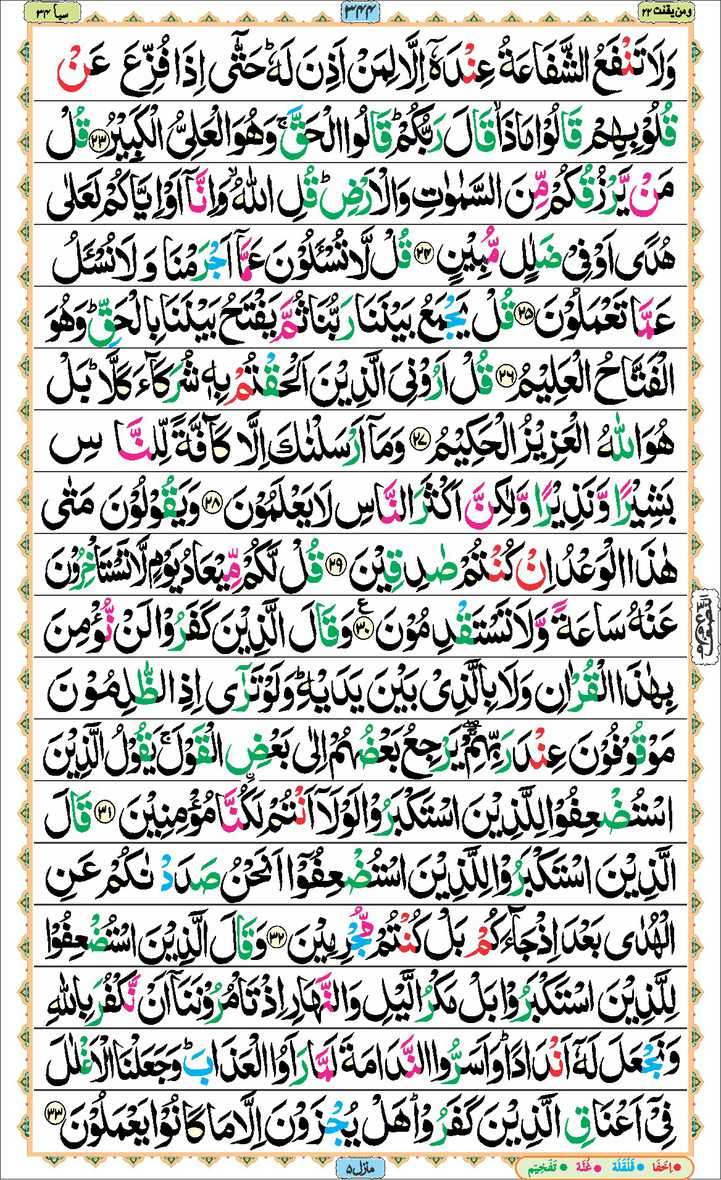 ومن یقنت ۲۲
۳۴۴
سبا ۳۴
وَلَا تَنْفَعُ الشَّفَاعَةُ عِنْدَهٗۤ اِلَّا لِمَنْ اَذِنَ لَهٗ ؕ حَتّٰۤی اِذَا فُزِّعَ عَنْ
قُلُوْبِهِمْ قَالُوْا مَاذَا ۙ قَالَ رَبُّكُمْ ؕ قَالُوا الْحَقَّ ۚ وَهُوَ الْعَلِیُّ الْكَبِیْرُ ۲۳ قُلْ
مَنْ یَّرْزُقُكُمْ مِّنَ السَّمٰوٰتِ وَالْاَرْضِ ؕ قُلِ اللّٰهُ ۙ وَاِنَّاۤ اَوْ اِیَّاكُمْ لَعَلٰی
هُدًی اَوْ فِیْ ضَلٰلٍ مُّبِیْنٍ ۲۴ قُلْ لَّا تُسْـَٔلُوْنَ عَمَّاۤ اَجْرَمْنَا وَلَا نُسْـَٔلُ
عَمَّا تَعْمَلُوْنَ ۲۵ قُلْ یَجْمَعُ بَیْنَنَا رَبُّنَا ثُمَّ یَفْتَحُ بَیْنَنَا بِالْحَقِّ ؕ وَهُوَ
الْفَتَّاحُ الْعَلِیْمُ ۲۶ قُلْ اَرُوْنِیَ الَّذِیْنَ اَلْحَقْتُمْ بِهٖ شُرَكَآءَ كَلَّا ؕ بَلْ
هُوَ اللّٰهُ الْعَزِیْزُ الْحَكِیْمُ ۲۷ وَمَاۤ اَرْسَلْنٰكَ اِلَّا كَآفَّةً لِّلنَّاسِ
بَشِیْرًا وَّنَذِیْرًا وَّلٰكِنَّ اَكْثَرَ النَّاسِ لَا یَعْلَمُوْنَ ۲۸ وَیَقُوْلُوْنَ مَتٰی
هٰذَا الْوَعْدُ اِنْ كُنْتُمْ صٰدِقِیْنَ ۲۹ قُلْ لَّكُمْ مِّیْعَادُ یَوْمٍ لَّا تَسْتَاْخِرُوْنَ
عَنْهُ سَاعَةً وَّلَا تَسْتَقْدِمُوْنَ ۳۰ ع وَقَالَ الَّذِیْنَ كَفَرُوْا لَنْ نُّؤْمِنَ
بِهٰذَا الْقُرْاٰنِ وَلَا بِالَّذِیْ بَیْنَ یَدَیْهِ ؕ وَلَوْ تَرٰۤی اِذِ الظّٰلِمُوْنَ
مَوْقُوْفُوْنَ عِنْدَ رَبِّهِمْ ۖۚ یَرْجِعُ بَعْضُهُمْ اِلٰی بَعْضِ ࣙالْقَوْلَ ۚ یَقُوْلُ الَّذِیْنَ
اسْتُضْعِفُوْا لِلَّذِیْنَ اسْتَكْبَرُوْا لَوْلَاۤ اَنْتُمْ لَكُنَّا مُؤْمِنِیْنَ ۳۱ قَالَ
الَّذِیْنَ اسْتَكْبَرُوْا لِلَّذِیْنَ اسْتُضْعِفُوْۤا اَنَحْنُ صَدَدْنٰكُمْ عَنِ
الْهُدٰی بَعْدَ اِذْ جَآءَكُمْ بَلْ كُنْتُمْ مُّجْرِمِیْنَ ۳۲ وَقَالَ الَّذِیْنَ اسْتُضْعِفُوْا
لِلَّذِیْنَ اسْتَكْبَرُوْا بَلْ مَكْرُ الَّیْلِ وَالنَّهَارِ اِذْ تَاْمُرُوْنَنَاۤ اَنْ نَّكْفُرَ بِاللّٰهِ
وَنَجْعَلَ لَهٗۤ اَنْدَادًا ؕ وَاَسَرُّوا النَّدَامَةَ لَمَّا رَاَوُا الْعَذَابَ ؕ وَجَعَلْنَا الْاَغْلٰلَ
فِیْۤ اَعْنَاقِ الَّذِیْنَ كَفَرُوْا ؕ هَلْ یُجْزَوْنَ اِلَّا مَا كَانُوْا یَعْمَلُوْنَ ۳۳
منزل ۵
اِخفَا قَلقَلَه غُنَّه تَفخِیم